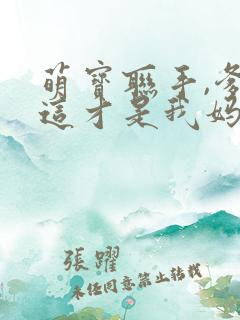 萌寶聯手,爹
這才是我媽
張躍
未經同意禁止轉載